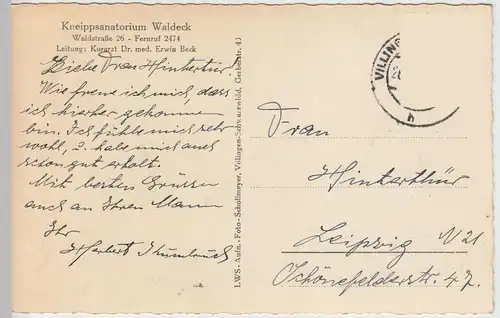 Kneippsanatorium Waldeck
Waldstraße 26 - Fernruf 2474
Leitung: Kurarzt Dr. med. Erwin Beck
Liebe Frau Hinterthür!
Wie freue ich mich, dass
ich hierher gekommen
bin. Ich fühle mich sehr
wohl, u. habe mich auch
schon gut erholt.
Mit besten Grüssen
auch an Ihren Mann
Ihr
Herbert
LWS-Aufn. - Foto-Schollmeyer, Villingen-Schwarzwald, Gerberstr. 43
VILLING
h
Frau
Hinterthür
Leipzig N 21
Schönefelderstr. 47.